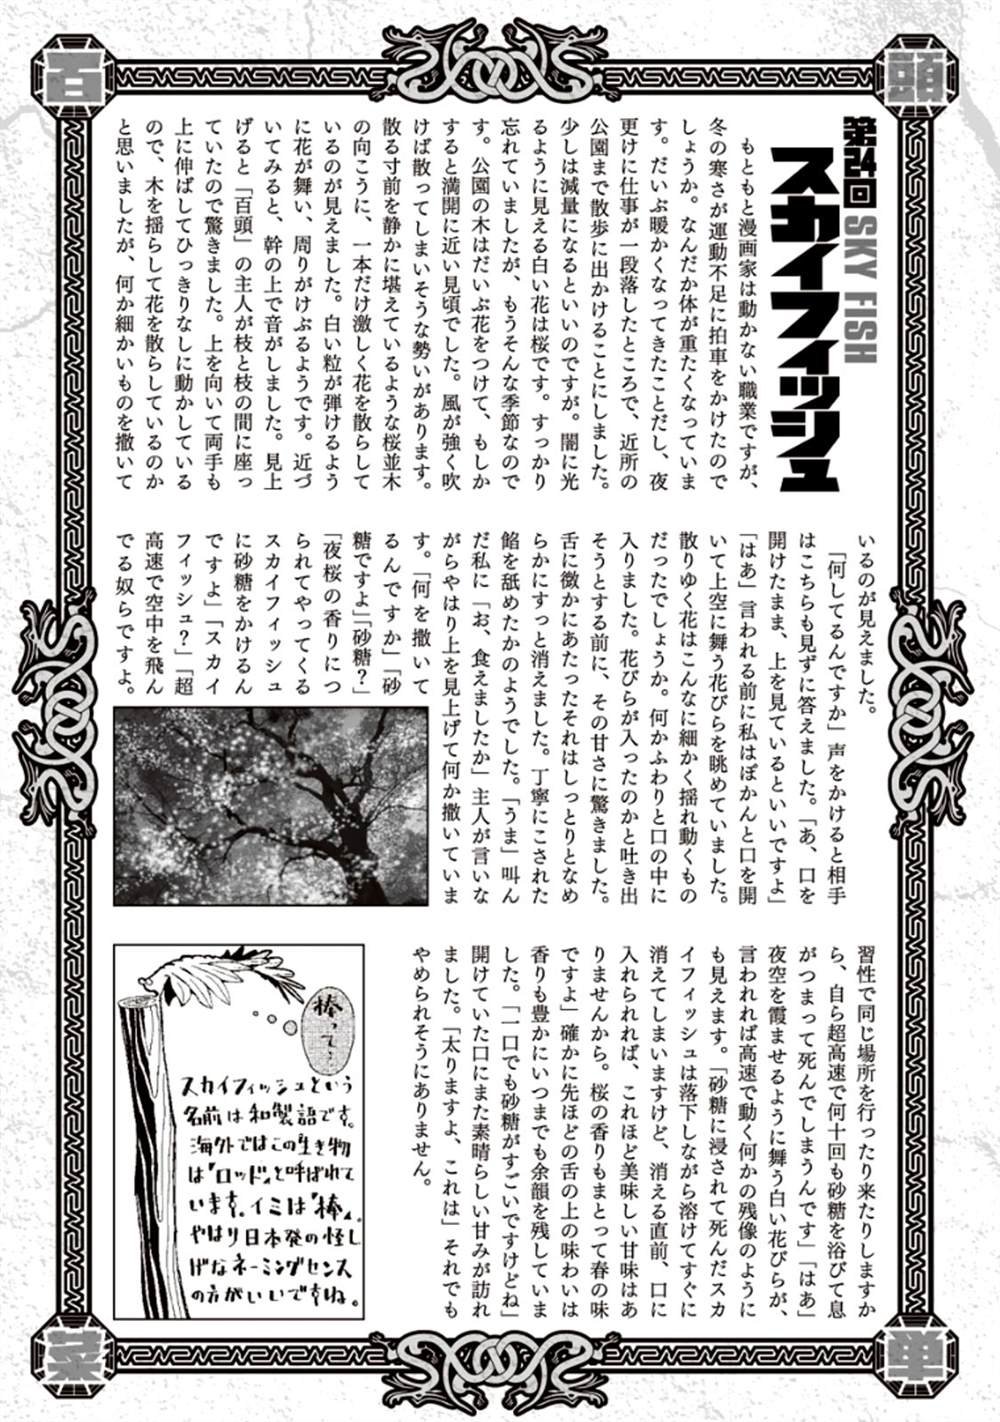 百
頭
菜
単
第24回
SKY FISH
スカイフィッシュ
もともと漫画家は動かない職業ですが、
冬の寒さが運動不足に拍車をかけたので
しょうか。なんだか体が重たくなっていま
す。だいぶ暖かくなってきたことだし、夜
更けに仕事が一段落したところで、近所の
公園まで散歩に出かけることにしました。
少しは減量になるといいのですが。闇に光
るように見える白い花は桜です。すっかり
忘れていましたが、もうそんな季節なので
す。公園の木はだいぶ花をつけて、もしか
すると満開に近い見頃でした。風が強く吹
けば散ってしまいそうな勢いがあります。
散る寸前を静かに堪えているような桜並木
の向こうに、一本だけ激しく花を散らして
いるのが見えました。白い粒が弾けるよう
に花が舞い、周りがけぶるようです。近づ
いてみると、幹の上で音がしました。見上
げると「百頭」の主人が枝と枝の間に座っ
ていたので驚きました。上を向いて両手も
上に伸ばしてひっきりなしに動かしている
ので、木を揺らして花を散らしているのか
と思いましたが、何か細かいものを撒いて
いるのが見えました。
「何してるんですか」声をかけると相手
はこちらも見ずに答えました。「あ、口を
開けたまま、上を見ているといいですよ」
「はあ」言われる前に私はぽかんと口を開
いて上空に舞う花びらを眺めていました。
散りゆく花はこんなに細かく揺れ動くもの
だったでしょうか。何かふわりと口の中に
入りました。花びらが入ったのかと吐き出
そうとする前に、その甘さに驚きました。
舌に微かにあたったそれはしっとりとなめ
らかにすっと消えました。丁寧にこされた
餡を舐めたかのようでした。「うま」叫ん
だ私に「お、食えましたか」主人が言いな
がらやはり上を見上げて何か撒いていま
す。「何を撒いて
るんですか」「砂
糖ですよ」「砂糖?」
「夜桜の香りにつ
られてやってくる
スカイフィッシュ
に砂糖をかけるん
ですよ」「スカイ
フィッシュ?」「超
高速で空中を飛ん
でる奴らですよ。
習性で同じ場所を行ったり来たりしますか
ら、自ら超高速で何十回も砂糖を浴びて息
がつまって死んでしまうんです」「はあ」
夜空を霞ませるように舞う白い花びらが、
言われれば高速で動く何かの残像のように
も見えます。「砂糖に浸されて死んだスカ
イフィッシュは落下しながら溶けてすぐに
消えてしまいますけど、消える直前、口に
入れられれば、これほど美味しい甘味はあ
りませんから。桜の香りもまとって春の味
ですよ」確かに先ほどの舌の上の味わいは
香りも豊かにいつまでも余韻を残していま
した。「一口でも砂糖がすごいですけどね」
開けていた口にまた素晴らしい甘みが訪れ
ました。「太りますよ、これは」それでも
やめられそうにありません。
棒って…
スカイフィッシュという
名前は和製語です。
海外ではこの生き物
は「ロッド」と呼ばれて
います。イミは「棒」。
やはり日本発の怪し
げなネーミングセンス
の方がいいですね。